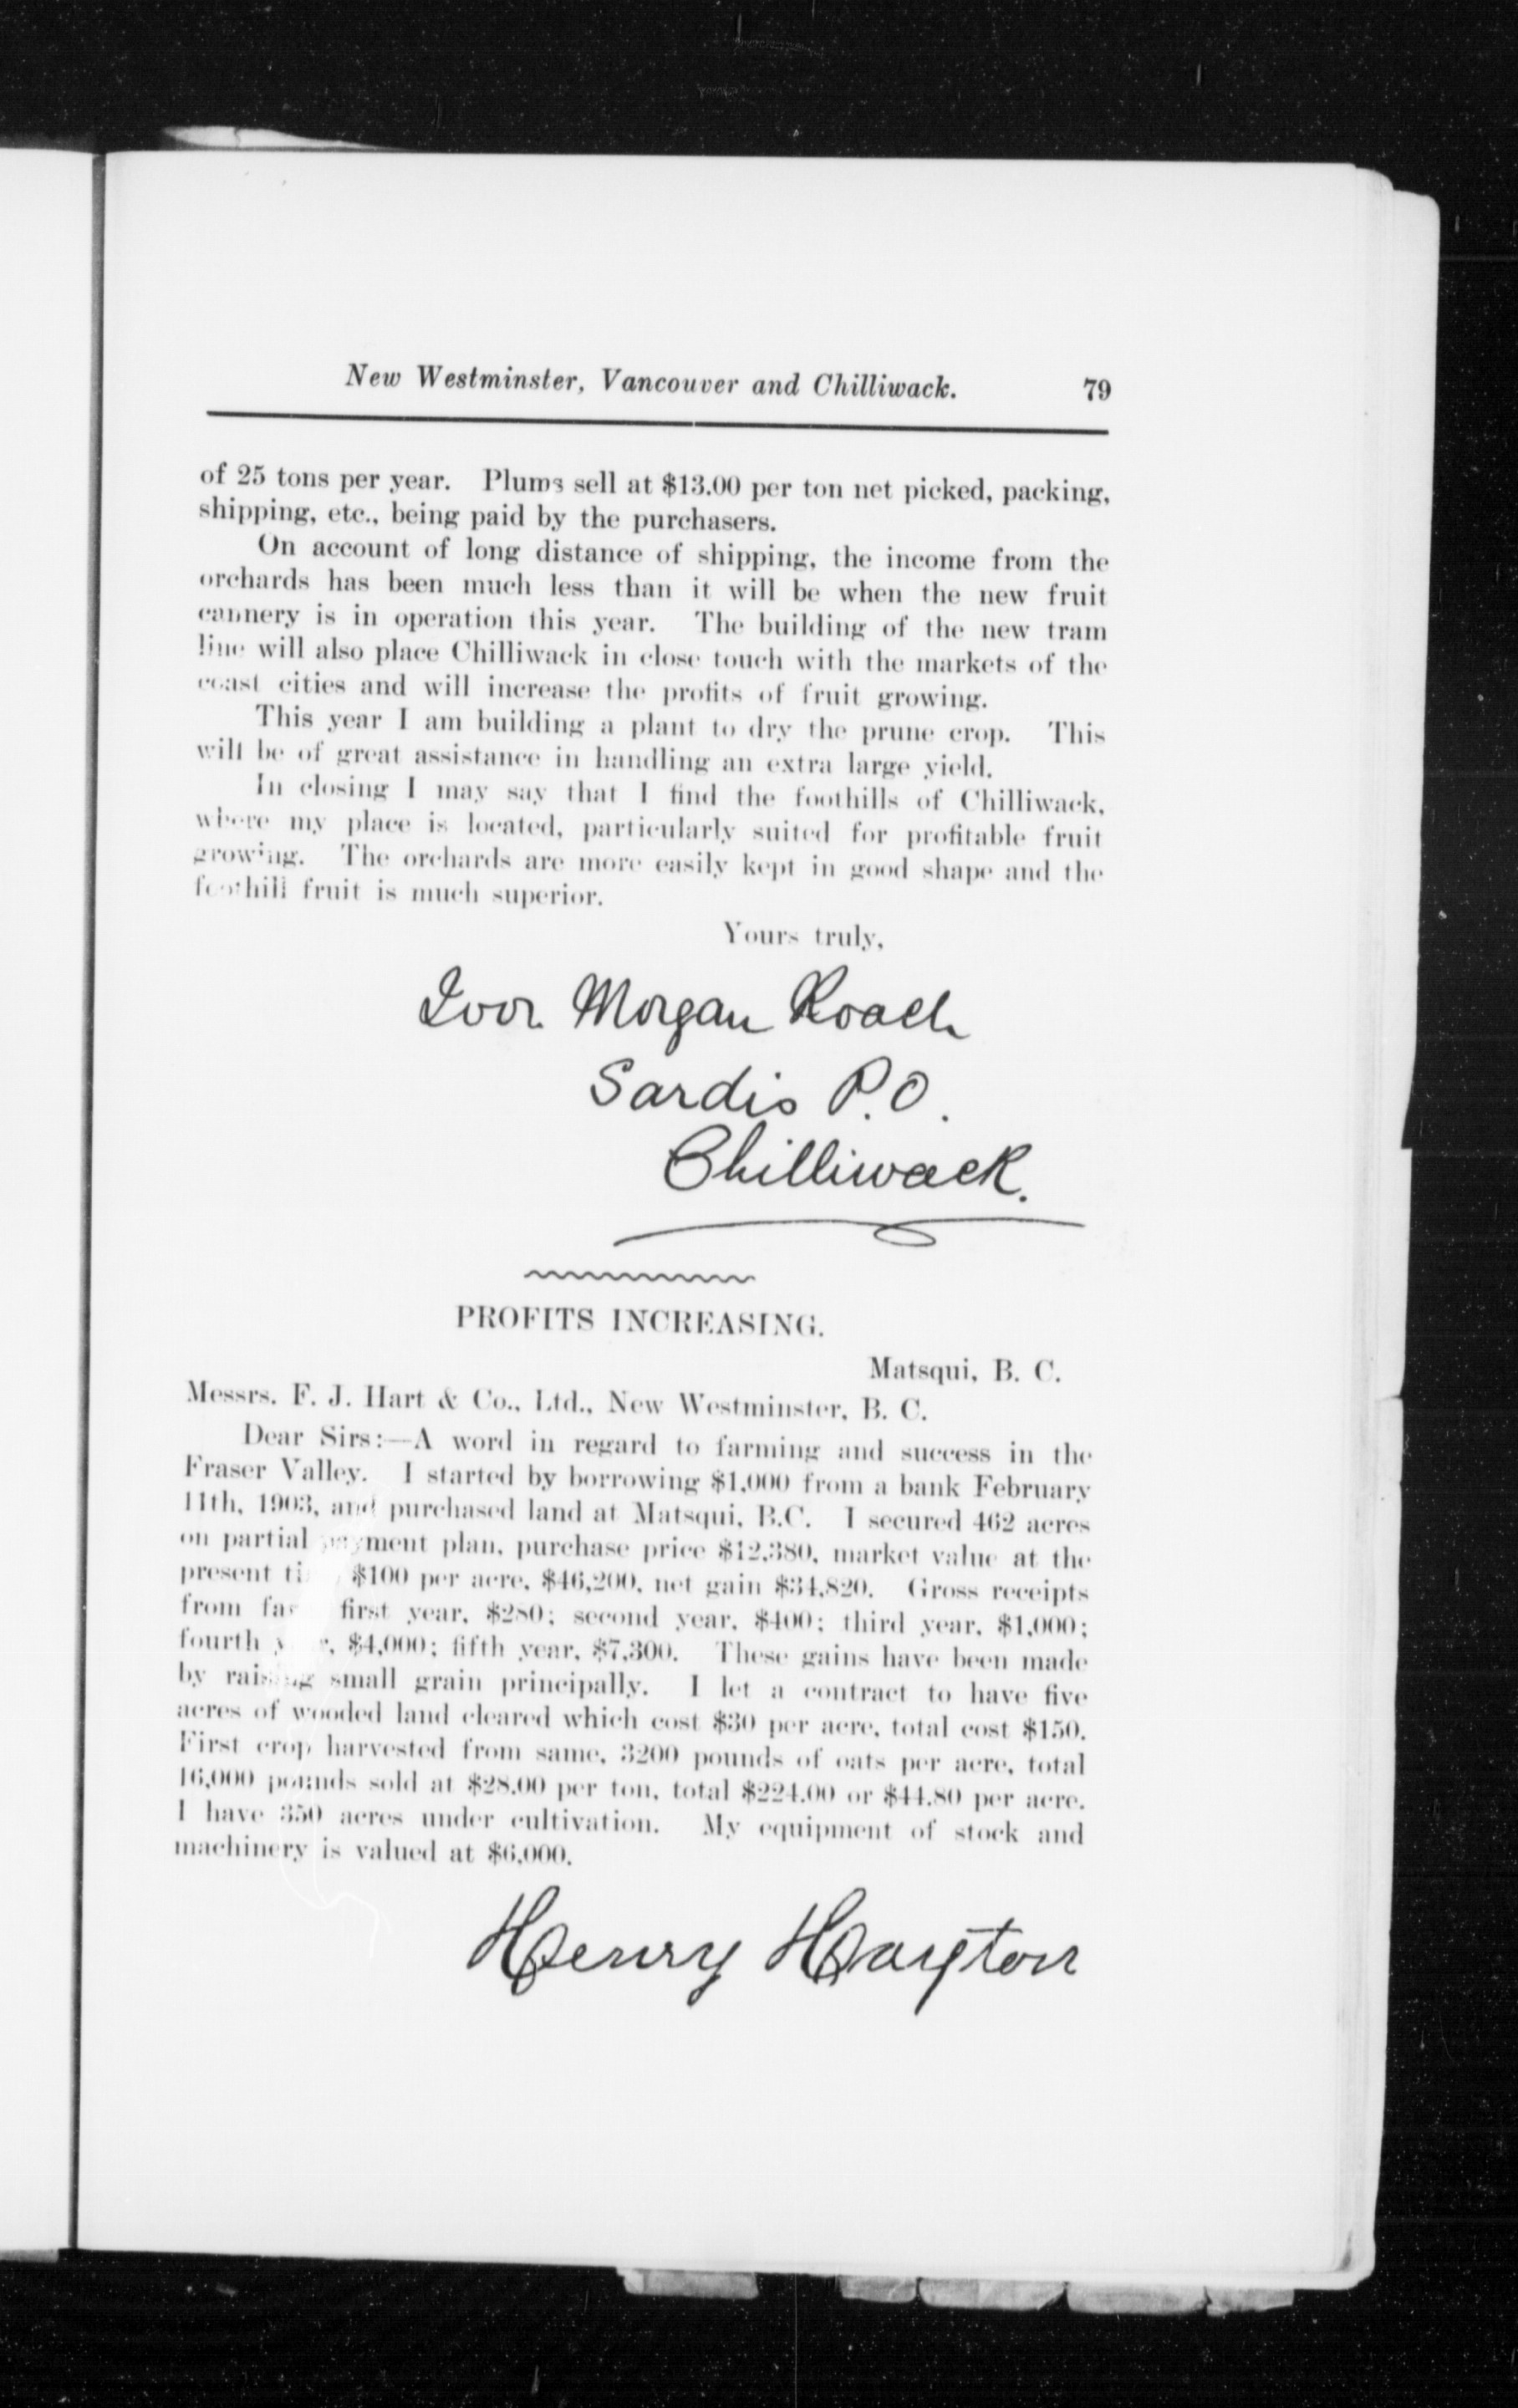 New Westminster, Vancouver and Chilliwack. 79
of 25 tons per year. Plums sell at $13.00 per ton net picked, packing,
shipping, etc., being paid by the purchasers.
On account of long distance of shipping, the income from the
orchards has been much less than it will be when the new fruit
cannery is in operation this year. The building of the new tram
line will also place Chilliwack in close touch with the markets of the
coast cities and will increase the profits of fruit growing.
This year I am building a plant to dry the prune crop. This
will be of great assistance in handling an extra large yield.
In closing I may say that I find the foothills of Chilliwack,
where my place is located, particularly suited for profitable fruit
growing. The orchards are more easily kept in good shape and the
foothill fruit is much superior.
Yours truly,
Ivor Morgan Roach
Sardis P.O.
Chilliwack.
PROFITS INCREASING.
Matsqui, B. C.
Messrs. F. J. Hart & Co., Ltd., New Westminster, B. C.
Dear Sirs:—A word in regard to farming and success in the
Fraser Valley. I started by borrowing $1,000 from a bank February
11th, 1903, and purchased land at Matsqui, B.C. I secured 462 acres
on partial payment plan, purchase price $12,380, market value at the
present $100 per acre, $46,200, net gain $34,820. Gross receipts
from first year, $280; second year, $400; third year, $1,000;
fourth $4,000; fifth year, $7,300. These gains have been made
by raising small grain principally. I let a contract to have five
acres of wooded land cleared which cost $30 per acre, total cost $150.
First crop harvested from same, 3200 pounds of oats per acre, total
16,000 pounds sold at $28.00 per ton, total $224.00 or $44.80 per acre.
I have 350 acres under cultivation. My equipment of stock and
machinery is valued at $6,000.
Henry Hayton